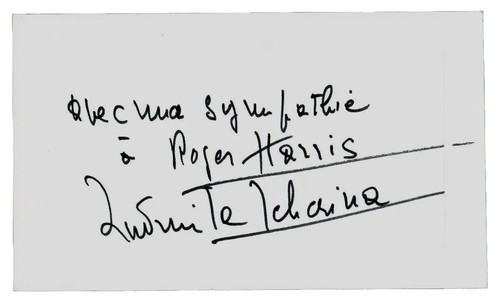 avec ma sympathie
à Roger Harris
Ludmila Tcherina